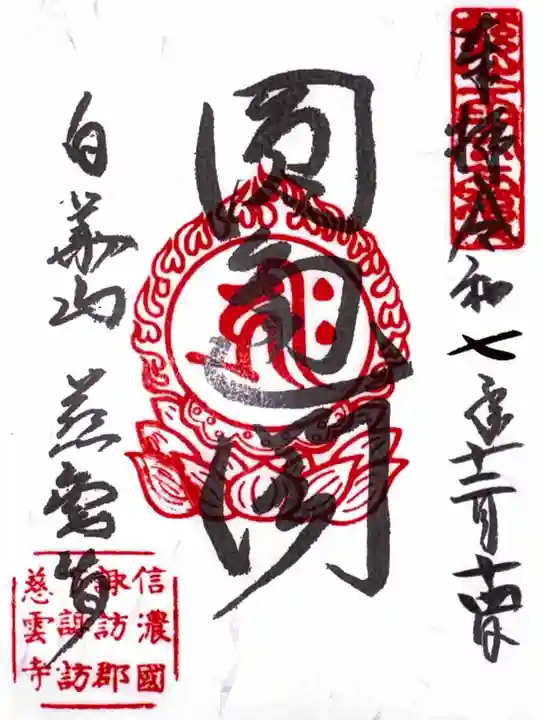 奉拝 令和七年十二月十四日
圓通閣
白華山 慈雲寺
信濃國
諏訪郡
諏訪
慈雲寺